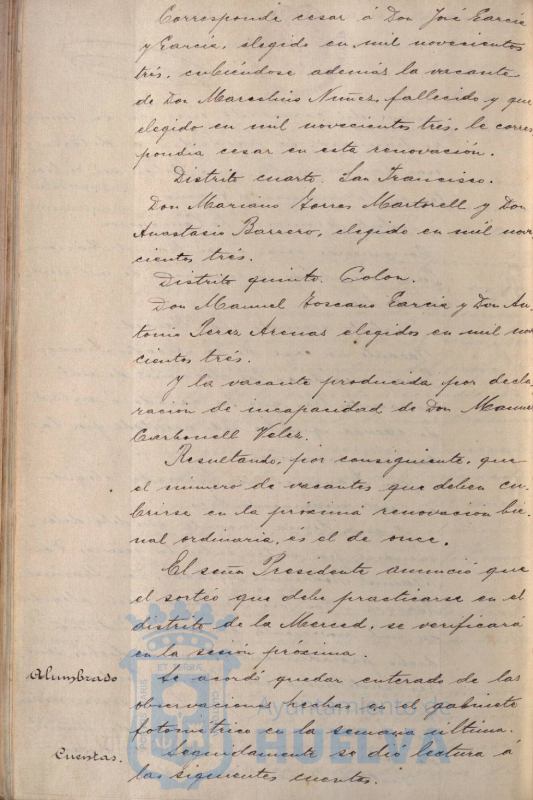 Corresponde cesar á Don José García
y García, elegido en mil novecientos
trés, cubiéndose además la vacante
de Don Marcelino Nuñez, fallecido y que
elegido en mil novecientos trés, le corres
pondia cesar en esta renovación.
Distrito cuarto. San Francisco.
Don Mariano Torres Martorell y Don
Anastasio Barrero, elegido en mil nove
cientos trés.
Distrito quinto. Colon.
Don Manuel Toscano García y Don An-
tonio Perez Arenas elegidos en mil no
cientos trés.
Y la vacante producida por decla
ración de incapacidad de Don Manuel
Carbonell Velez.
Resultando, por consiguiente, que
el número de vacantes que deben cu-
brirse en la próxima renovación bie-
nal ordinaria, és el de once.
El señor Presidente anunció que
el sorteo que debe practicarse en el
distrito de la Merced, se verificará
en la sesión próxima.
Alumbrado
Se acordó quedar enterado de las
observaciones hechas en el gabinete
fotométrico en la semana última.
Cuentas.
Seguidamente se dió lectura á
las siguientes cuentas.
Ayuntamiento de
HUELVA